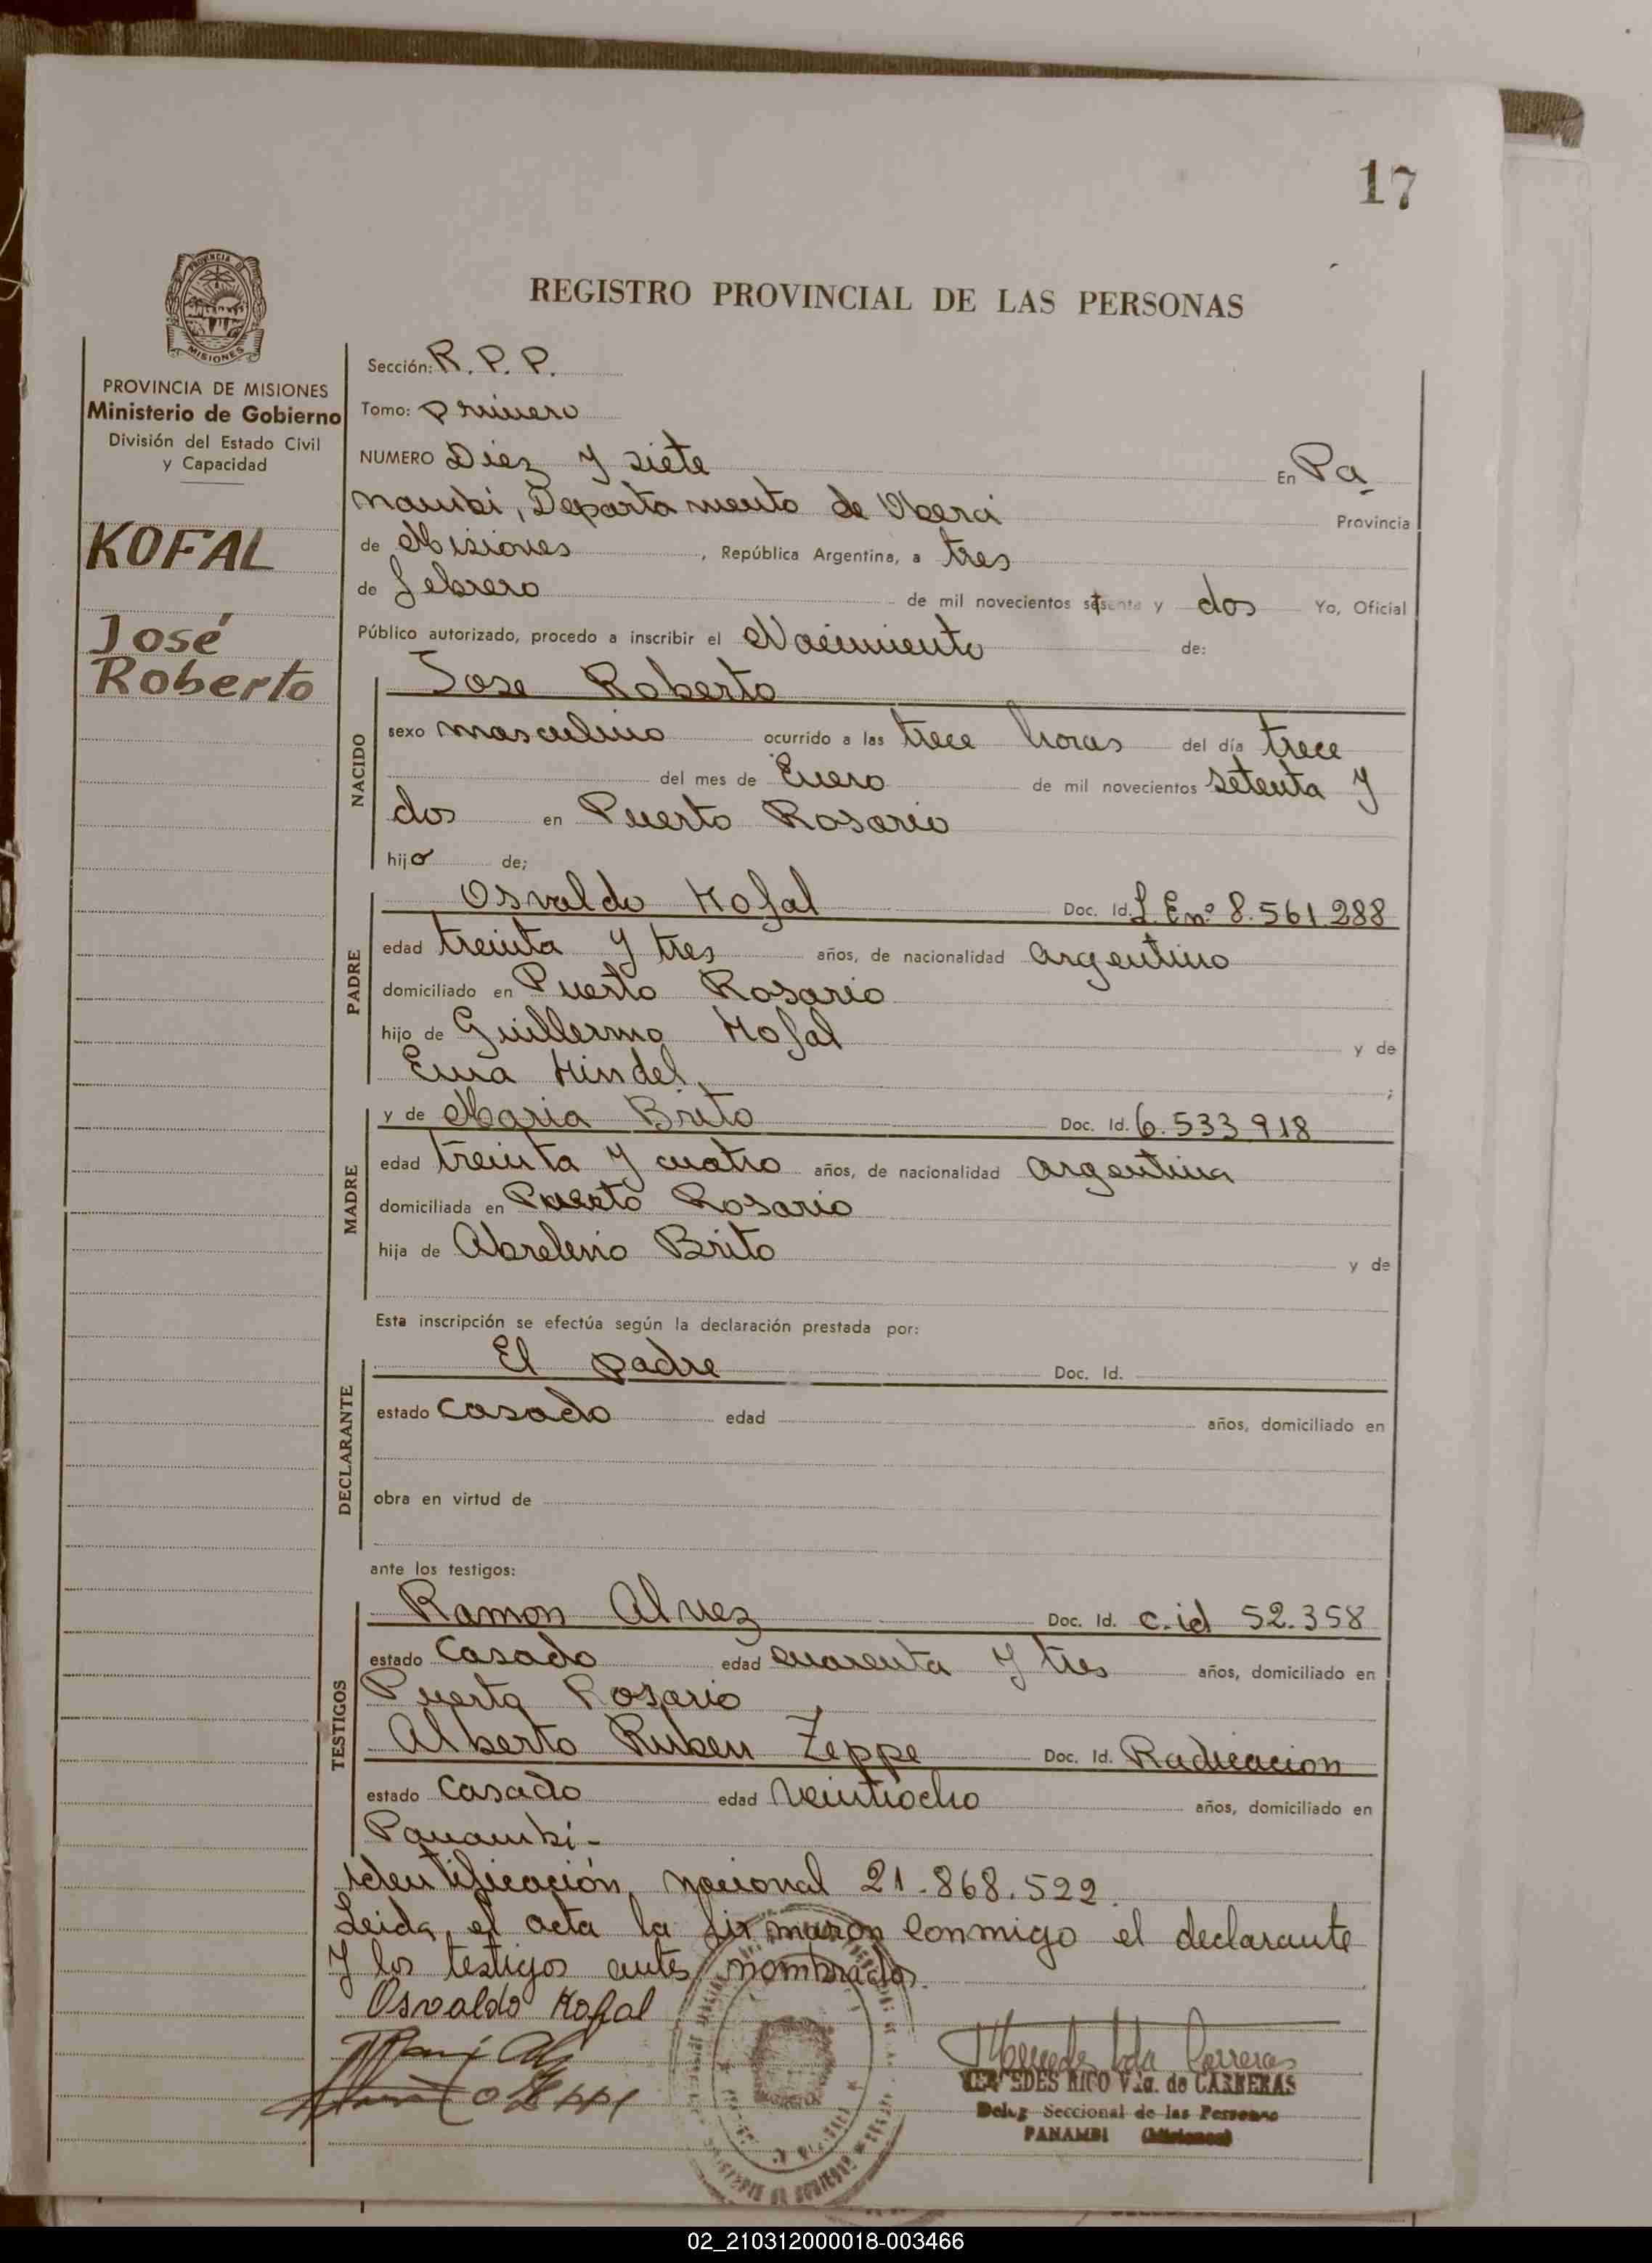 17
PROVINCIA DE
MISIONES
REGISTRO PROVINCIAL DE LAS PERSONAS
PROVINCIA DE MISIONES
Ministerio de Gobierno
División del Estado Civil
y Capacidad
KOFAL
José
Roberto
Sección: R. P. P.
Tomo: Primero
NUMERO Diez y siete En Pa
nambi, Departamento de Obera Provincia
de Misiones, República Argentina, a tres
de febrero de mil novecientos setenta y dos Yo, Oficial
Público autorizado, procedo a inscribir el Nacimiento de:
NACIDO
Jose Roberto
sexo masculino ocurrido a las trece horas del día trece
del mes de Enero de mil novecientos setenta y
dos en Puerto Rosario
hijo de;
PADRE
Osvaldo Kofal Doc. Id. L. E nº 8.561.288
edad treinta y tres años, de nacionalidad argentino
domiciliado en Puerto Rosario
hijo de Guillermo Kofal y de
Ema Hindel ;
MADRE
y de Maria Brito Doc. Id. 6.533.918
edad treinta y cuatro años, de nacionalidad argentina
domiciliada en Puerto Rosario
hija de Abrelino Brito y de
Esta inscripción se efectúa según la declaración prestada por:
DECLARANTE
El padre Doc. Id.
estado casado edad años, domiciliado en
obra en virtud de
ante los testigos:
TESTIGOS
Ramon Alvez Doc. Id. c.id 52.358
estado casado edad cuarenta y tres años, domiciliado en
Puerto Rosario
Alberto Ruben Zeppe Doc. Id. Radicacion
estado casado edad veintiocho años, domiciliado en
Panambi -
identificación nacional 21.868.522.
Leida el acta la firmaron conmigo el declarante
y los testigos antes nombrados.
Osvaldo Kofal
Carreras
MERCEDES RICO Vda. de CARRERAS
Deleg. Seccional de las Personas
PANAMBI (Misiones)
02_210312000018-003466